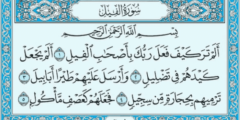 سُورَةُ الْفِيلِ
بِسْمِ اللَّهِ الرَّحْمَٰنِ الرَّحِيمِ
أَلَمْ تَرَ كَيْفَ فَعَلَ رَبُّكَ بِأَصْحَابِ الْفِيلِ ١ أَلَمْ يَجْعَلْ
كَيْدَهُمْ فِي تَضْلِيلٍ ٢ وَأَرْسَلَ عَلَيْهِمْ طَيْرًا أَبَابِيلَ ٣
تَرْمِيهِمْ بِحِجَارَةٍ مِنْ سِجِّيلٍ ٤ فَجَعَلَهُمْ كَعَصْفٍ مَأْكُولٍ ٥